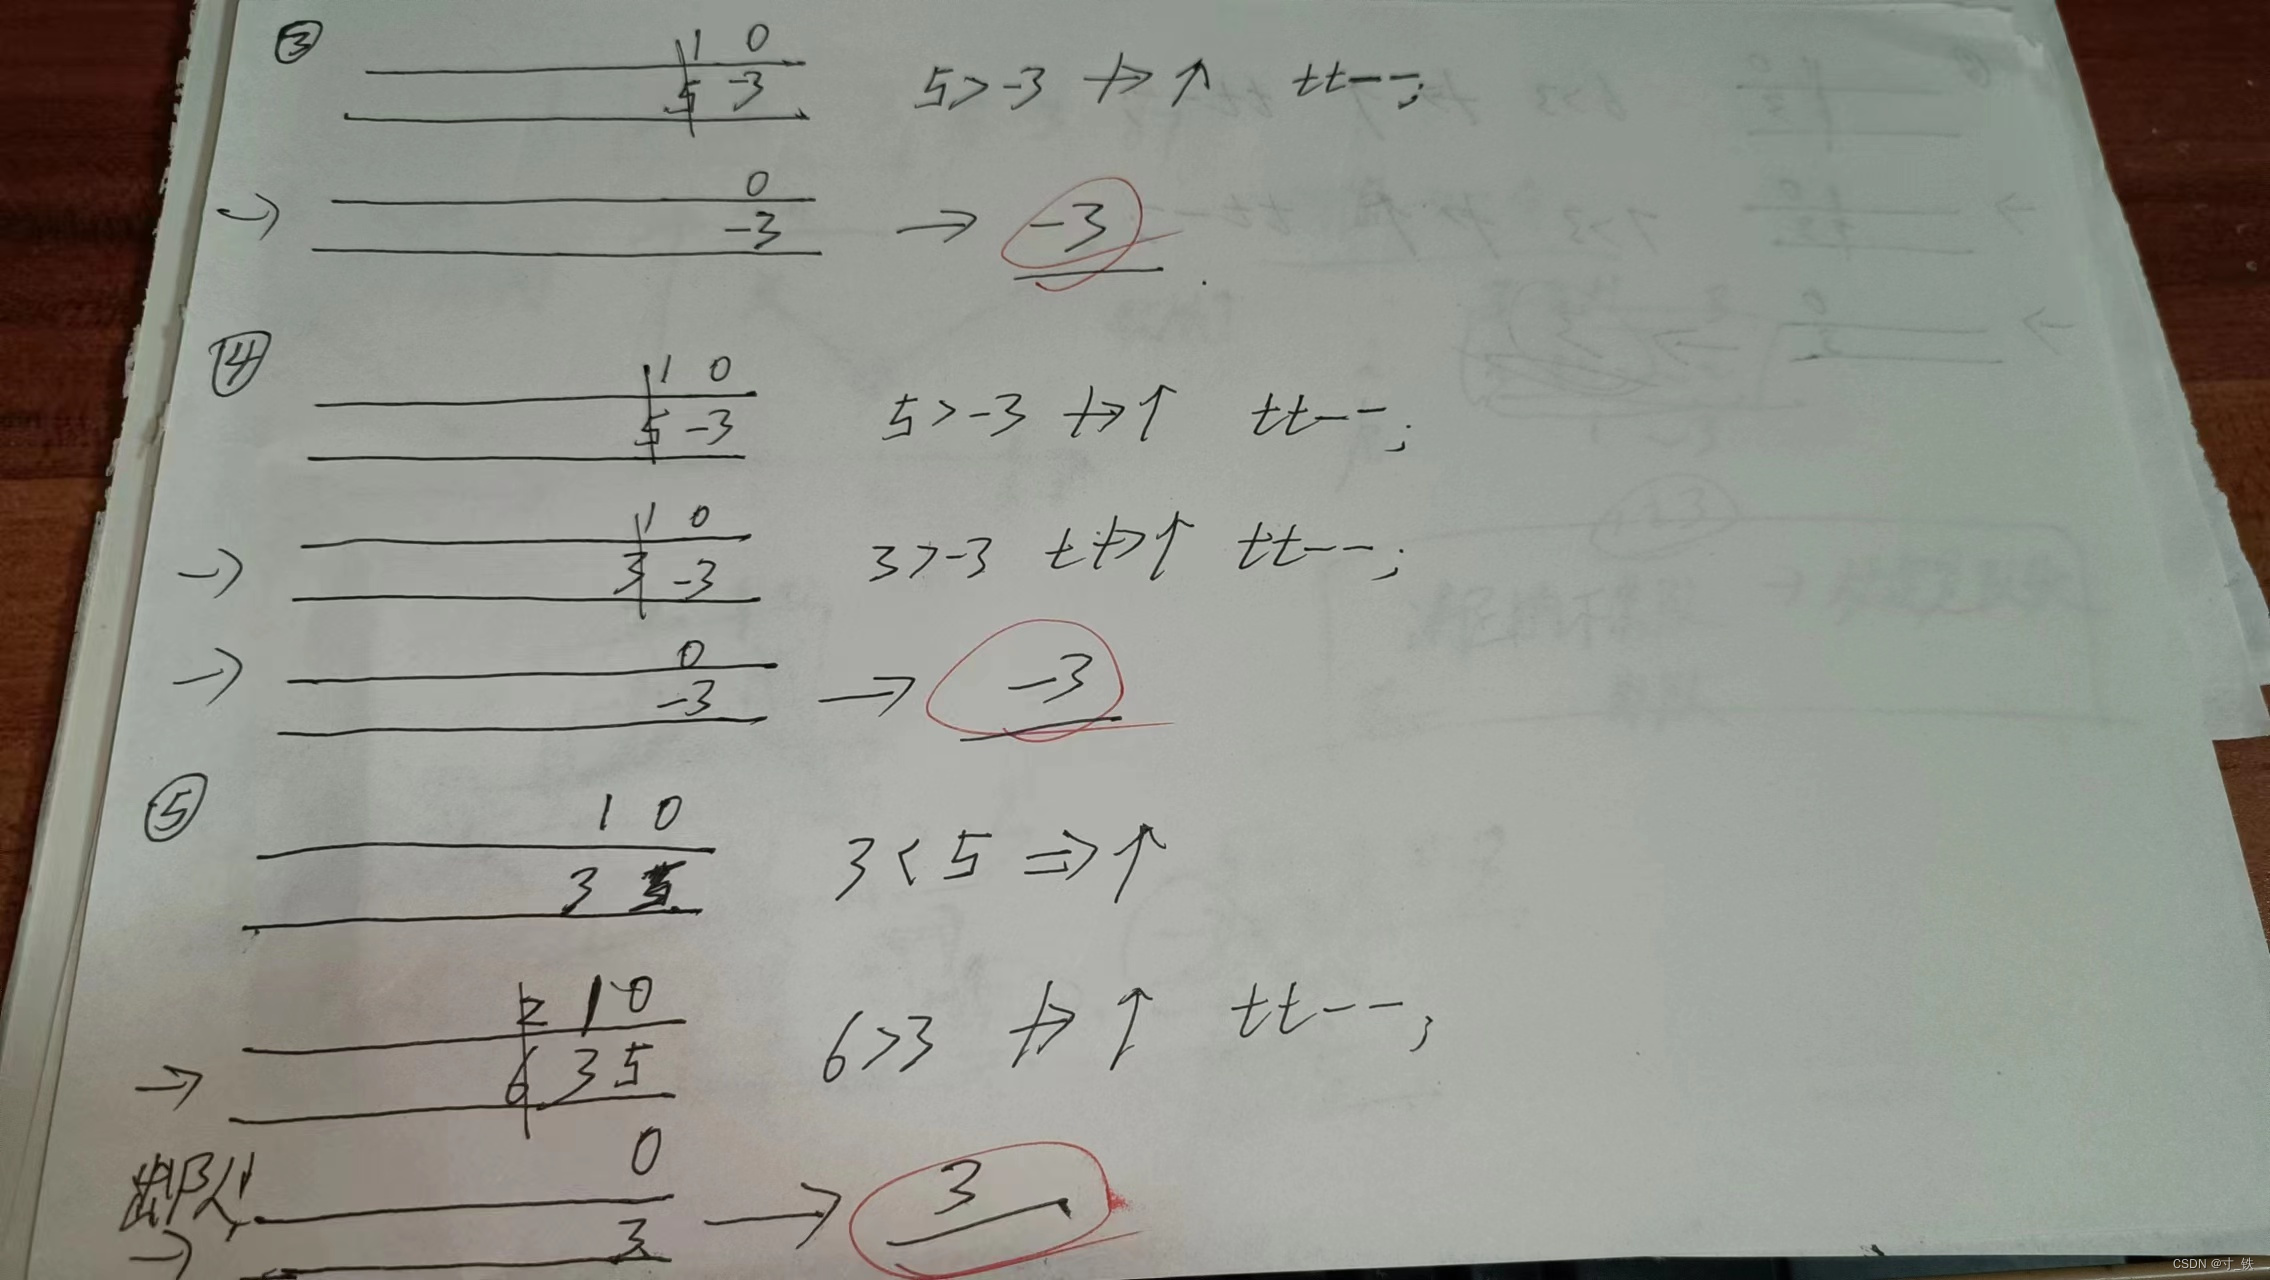 ③ 1 0
5 -3 5>-3 ⇏ ↑ tt--;
0
→ -3 → -3
④ 1 0
5 -3 5>-3 ⇏ ↑ tt--;
1 0
→ 3 -3 3>-3 ⇏ ↑ tt--;
0
→ -3 → -3
⑤ 1 0
3 5 3<5 ⇒ ↑
2 1 0
→ 6 3 5 6>3 ⇏ ↑ tt--;
出队 0
→ 3 → 3
CSDN @寸_铁